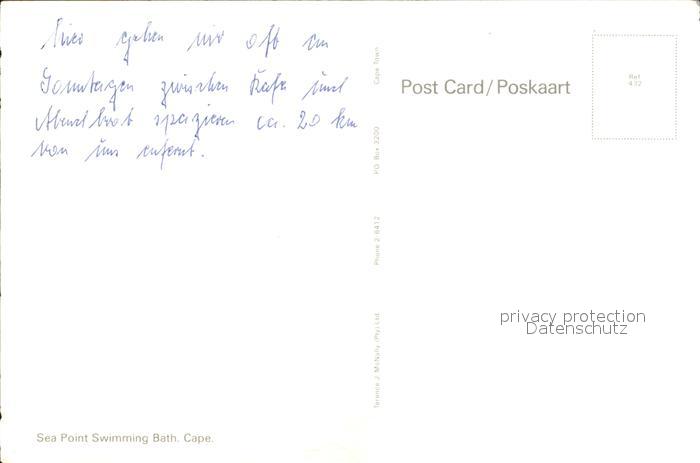 Hier gehen wir oft an
Sonntagen zwischen Kafe und
Abendbrot spazieren ca. 20 km
von uns enfernt.
Sea Point Swimming Bath. Cape.
Terence J. McNally (Pty) Ltd.
Phone 2 6412
P.O. Box 3200
Cape Town
Post Card/Poskaart
Ref
432
privacy protection
Datenschutz